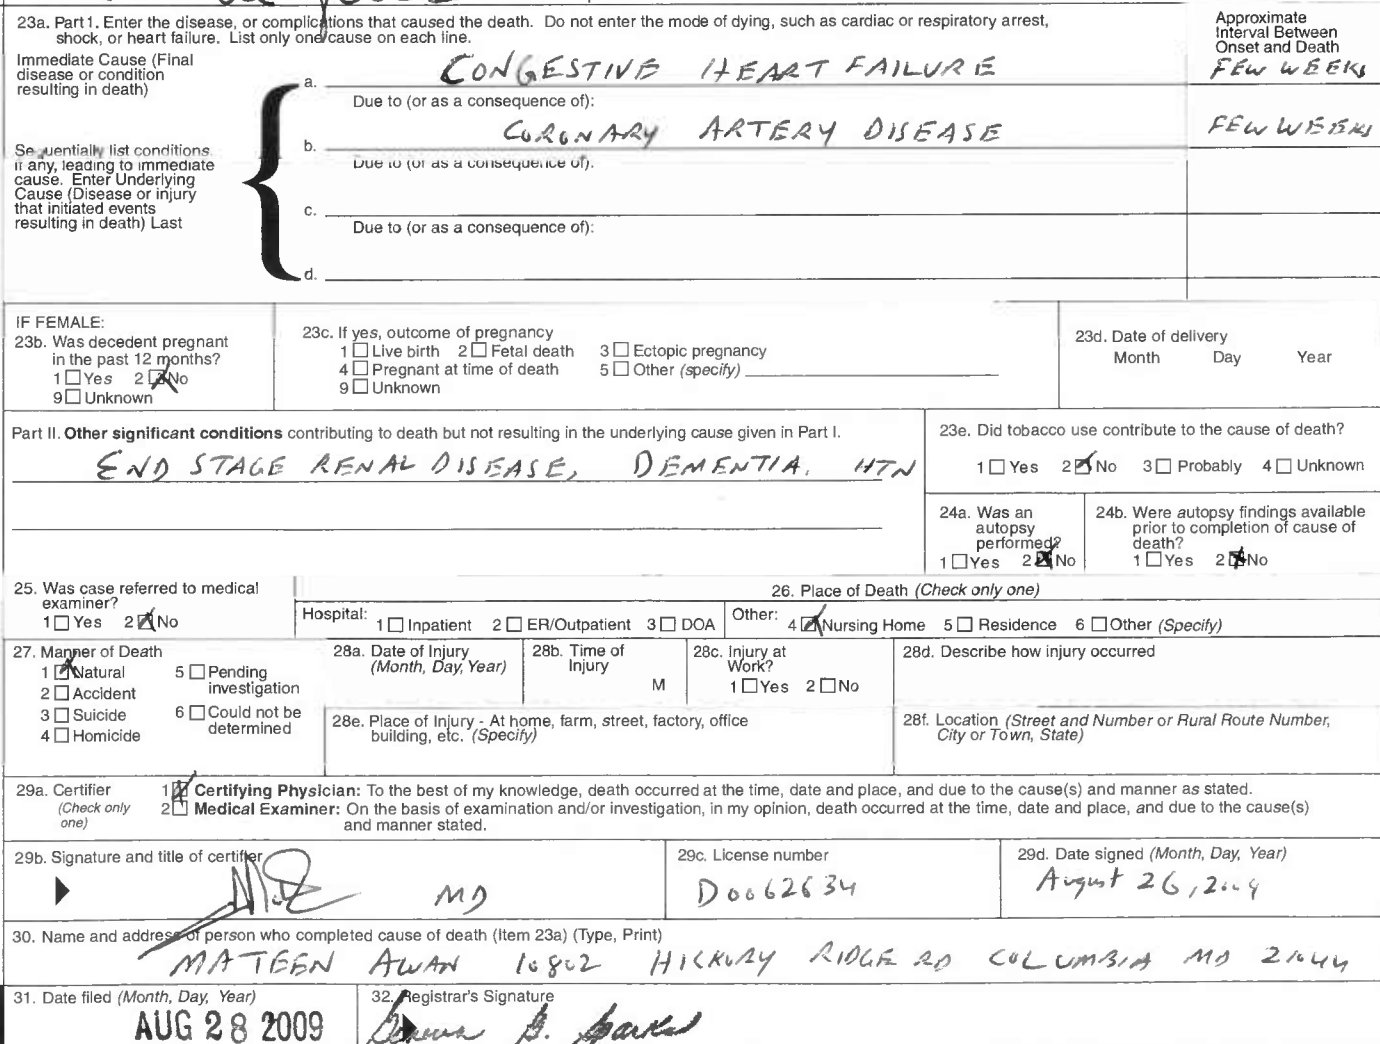 23a. Part 1. Enter the disease, or complications that caused the death. Do not enter the mode of dying, such as cardiac or respiratory arrest,
shock, or heart failure. List only one cause on each line.
Approximate
Interval Between
Onset and Death
Immediate Cause (Final
disease or condition
resulting in death)
a. CONGESTIVE HEART FAILURE FEW WEEKS
Due to (or as a consequence of):
b. CORONARY ARTERY DISEASE FEW WEEKS
Sequentially list conditions.
if any, leading to immediate
cause. Enter Underlying
Cause (Disease or injury
that initiated events
resulting in death) Last
Due to (or as a consequence of):
c.
Due to (or as a consequence of):
d.
IF FEMALE:
23b. Was decedent pregnant
in the past 12 months?
1 Yes 2 No
9 Unknown
23c. If yes, outcome of pregnancy
1 Live birth 2 Fetal death 3 Ectopic pregnancy
4 Pregnant at time of death 5 Other (specify)
9 Unknown
23d. Date of delivery
Month Day Year
Part II. Other significant conditions contributing to death but not resulting in the underlying cause given in Part I.
END STAGE RENAL DISEASE, DEMENTIA, HTN
23e. Did tobacco use contribute to the cause of death?
1 Yes 2 No 3 Probably 4 Unknown
24a. Was an
autopsy
performed?
1 Yes 2 No
24b. Were autopsy findings available
prior to completion of cause of
death?
1 Yes 2 No
25. Was case referred to medical
examiner?
1 Yes 2 No
26. Place of Death (Check only one)
Hospital: 1 Inpatient 2 ER/Outpatient 3 DOA Other: 4 Nursing Home 5 Residence 6 Other (Specify)
27. Manner of Death
1 Natural 5 Pending
investigation
2 Accident
3 Suicide 6 Could not be
determined
4 Homicide
28a. Date of Injury
(Month, Day, Year)
28b. Time of
Injury
M
28c. Injury at
Work?
1 Yes 2 No
28d. Describe how injury occurred
28e. Place of Injury - At home, farm, street, factory, office
building, etc. (Specify)
28f. Location (Street and Number or Rural Route Number,
City or Town, State)
29a. Certifier
(Check only
one)
1 Certifying Physician: To the best of my knowledge, death occurred at the time, date and place, and due to the cause(s) and manner as stated.
2 Medical Examiner: On the basis of examination and/or investigation, in my opinion, death occurred at the time, date and place, and due to the cause(s)
and manner stated.
29b. Signature and title of certifier
MD
29c. License number
D0062634
29d. Date signed (Month, Day, Year)
August 26, 2009
30. Name and address of person who completed cause of death (Item 23a) (Type, Print)
MATEEN AWAN 10802 HICKORY RIDGE RD COLUMBIA MD 21044
31. Date filed (Month, Day, Year)
AUG 28 2009
32. Registrar's Signature